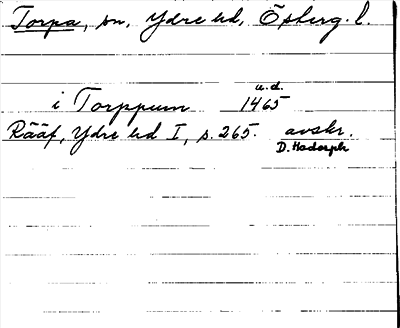 Torpa, sn, Ydre hd, Österg. l.
u.d.
i Torppum 1465
Rääf, Ydre hd I, s. 265. avskr.
D. Hadorph